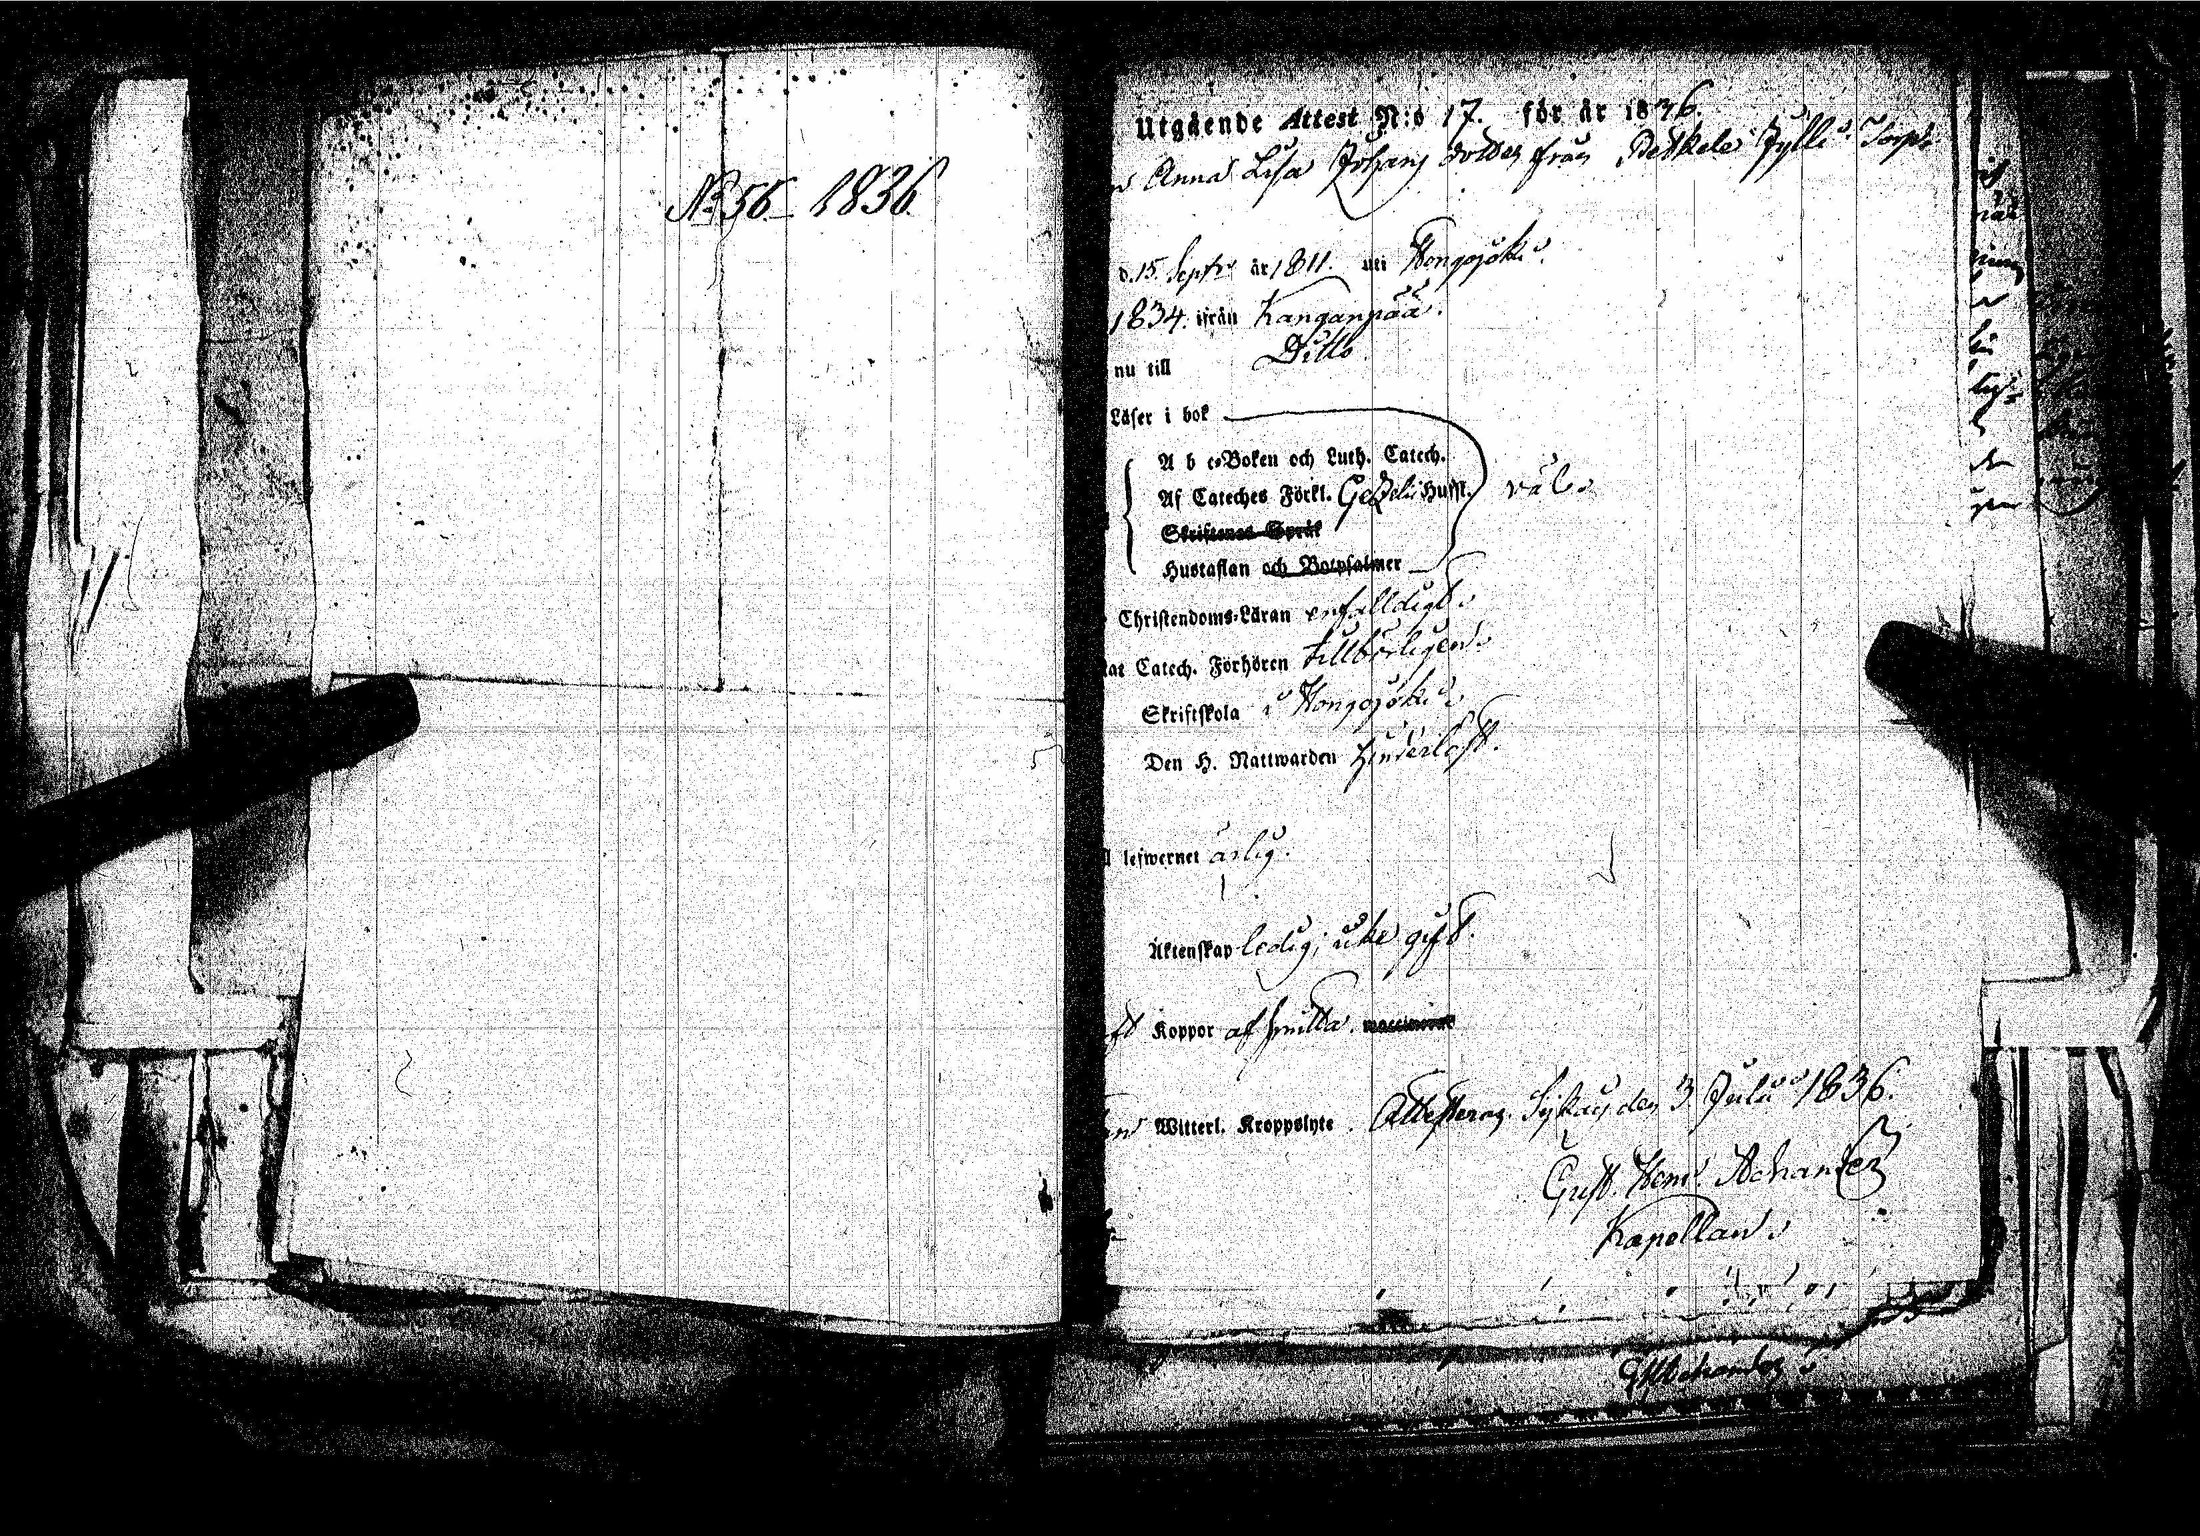 No 56 1836
Utgående Attest N:o 17. för år 1836.
Anna Lisa Johans dotter från Peskele Jylli Torp
d. 15 Septr år 1811. uti Hongojoki
1834. ifrån Kanganpää.
nu till Ditto
Läser i bok
A b c-Boken och Luth. Catech.
Af Cateches Förkl. Gezelii Husfl. väl.
Skriftenes Språk
Hustaflan och Botpsalmer
Christendoms-Läran enfalldigt.
Catech. Förhören tillbörligen.
Skriftskola i Hongojoki
Den H. Nattwarden hinderlöst.
lefwernet ärlig.
Äktenskap ledig; icke gift.
Koppor af smitta. vaccinerat
Witterl. Kroppslyte. Attesteras Sijkais den 3 Julii 1836.
Gust. Henr.
Kapellan.